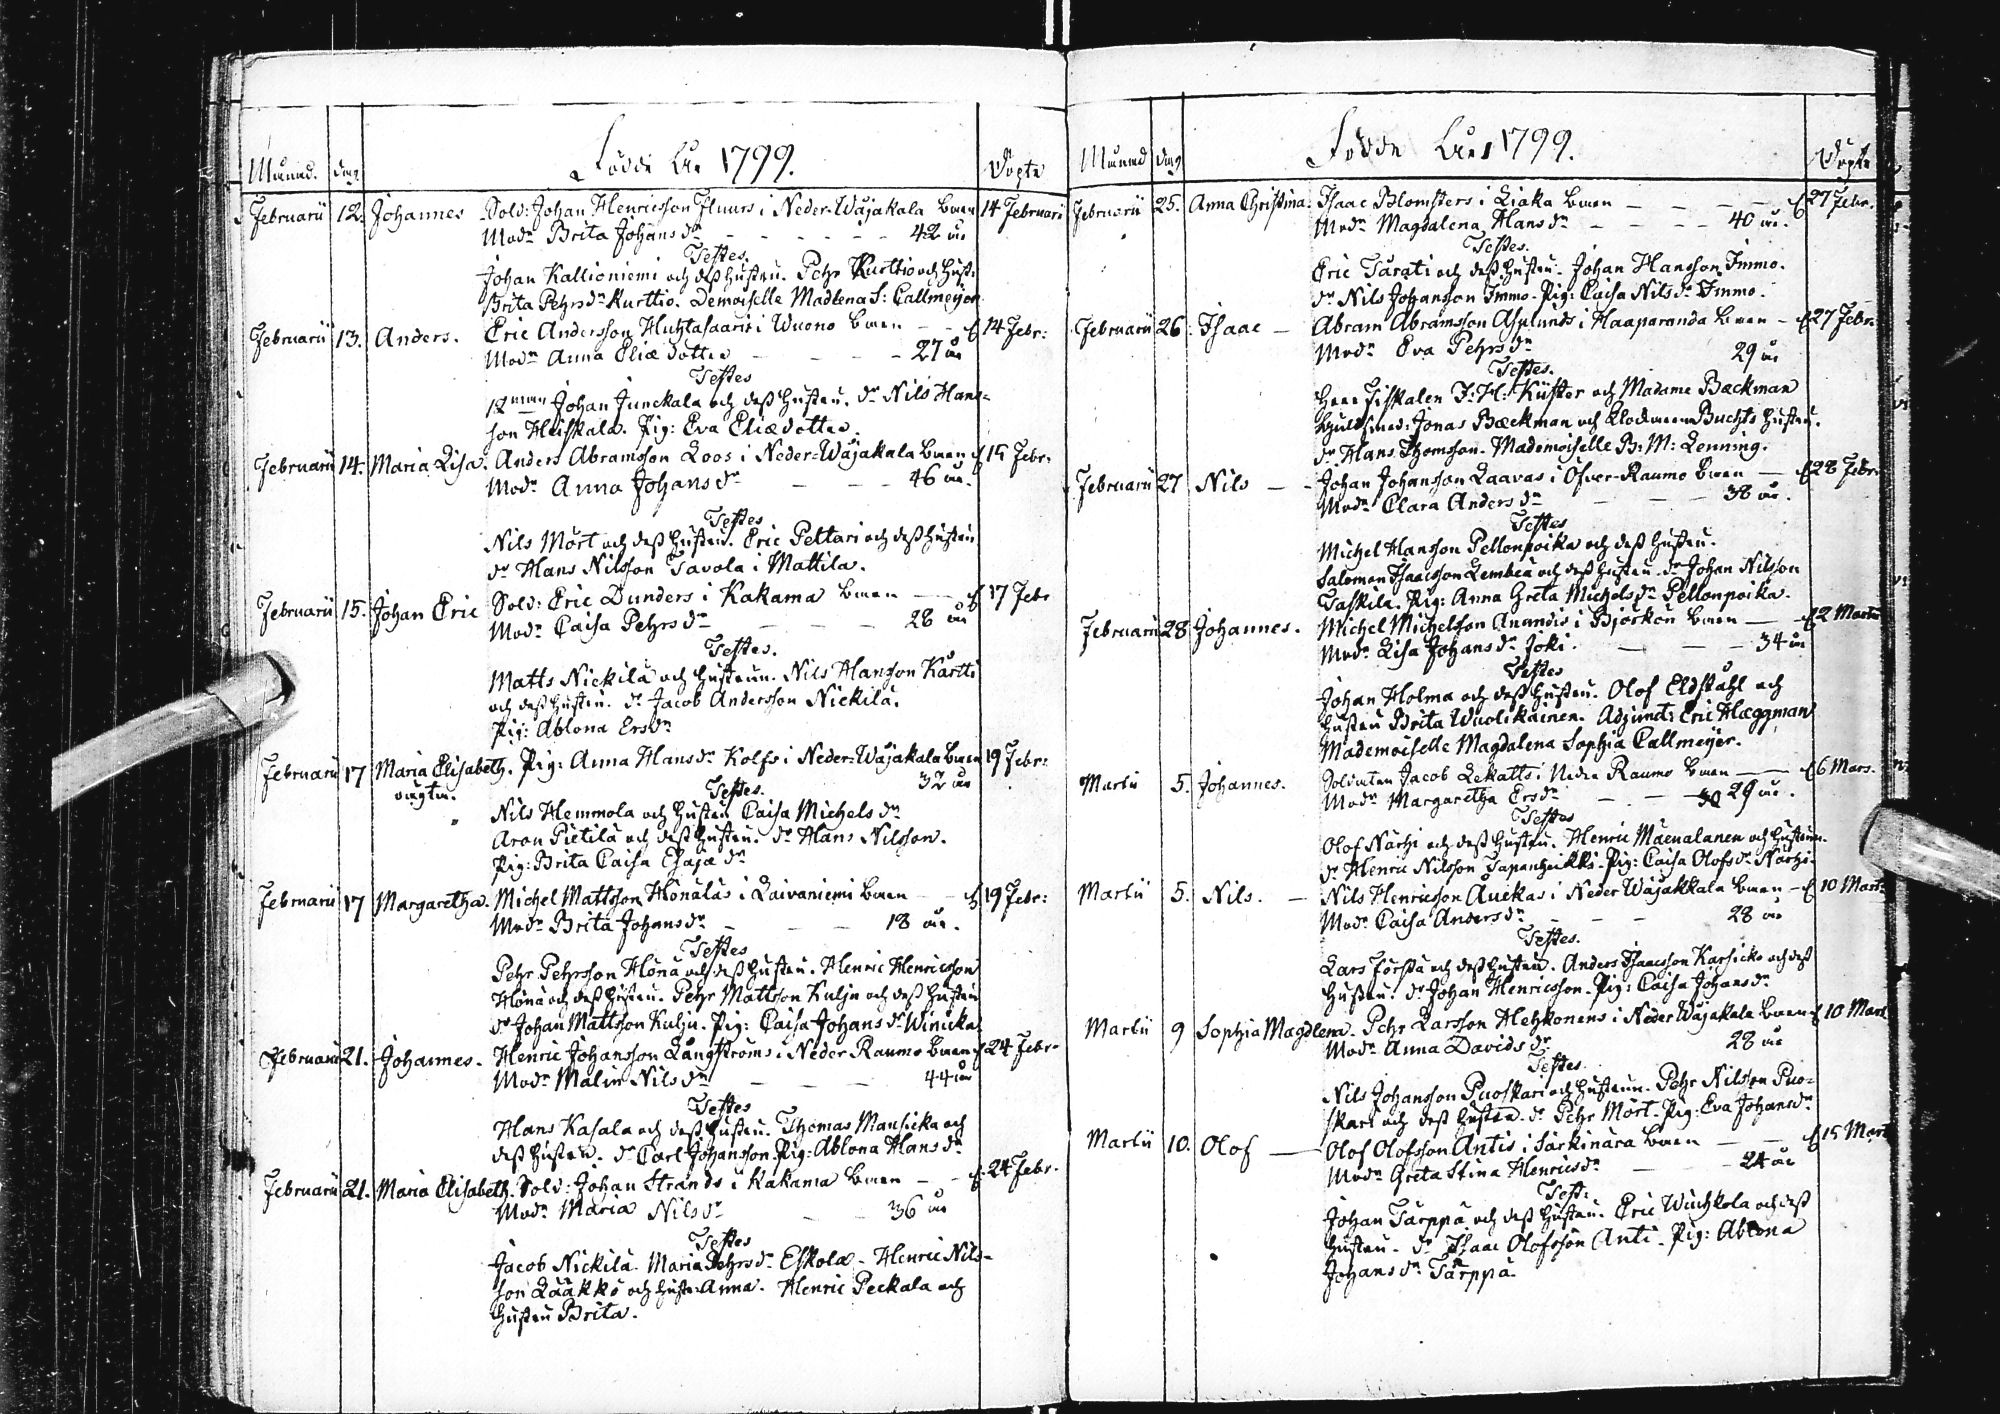 Födde År 1799.
Månad. dag Döpte
Februarii 12. Johannes Sold: Johan Henricsson Fluurs i Neder-Wåjakala barn 14 Februari
Modn Brita Johansdr 42 år
Testes.
Johan Kallioniemi och dess hustru. Pehr Kurttio och hust:
Brita Pehrsdr Kurttio. Demoiselle Madlena S: Callmeijer
Februarii 13. Anders. Eric Andersson Huhtasaaris i Wuono barn 14 Febr:
Modn Anna Eliæ dotter 27 år
Testes
12man Johan Junckala och dess hustru. dr Nils Hans=
son Heiskala. Pig: Eva Eliædotter.
Februarii 14. Maria Lisa. Anders Abramsson Loos i Neder-Wåjakala barn 15 Febr.
Modn Anna Johansdr 46 år.
Testes
Nils Mört och dess hustru. Eric Pettari och dess hustru
dr Hans Nilsson Tavola i Mattila.
Februarii 15. Johan Eric Sold: Eric Dunders i Kakama barn 17 Febr
Modn Caisa Pehrsdr 28 år
Testes.
Matts Nickilä och hustrun. Nils Hansson Kartti
och dess hustru. dr Jacob Andersson Nickilä.
Pig: Ablona Ersdr
Februarii 17 Maria Elisabeth. Pig: Anna Hansdr Kolfs i Neder-Wåjakala barn 19 Febr:
oägta. Testes. 32 år
Nils Hemmola och hustru Caisa Michelsdr
Aron Pietilä och dess hustru. dr Hans Nilsson.
Pig: Brita Caisa Esajædr
Februarii 17 Margaretha. Michel Mattsson Hönäläs i Laivaniemi barn 19 Febr:
Modn Brita Johansdr 18 år.
Testes
Pehr Pehrsson Hönä och dess hustru. Henric Henricsson
Hönä och dess hustru. Pehr Mattsson Kulju och dess hustru
dr Johan Mattsson Kulju. Pig: Caisa Johansdr Winicka
Februarii 21. Johannes. Henric Johansson Långströms i Neder Raumo barn 24 Febr.
Modn Malin Nilsdr 44 år
Testes
Hans Kasala och dess hustru. Thomas Mansicka och
dess hustru. dr Carl Johansson. Pig: Ablona Hansdr
Februarii 21. Maria Elisabeth. Sold: Johan Strands i Kakama barn 24 Febr.
Modn Maria Nilsdr 36 år
Testes
Jacob Nickilä. Maria Pehrsdr Eskola. Henric Nils=
son Lääkkö och hustr: Anna. Henric Peckala och
hustru Brita.
Födde År 1799.
Månad dag Döpte
Februarii 25. Anna Christina. Isaac Blomsters i Liaka barn 27 Febr.
Modn Magdalena Hansdr 40 år.
Testes.
Eric Tarati och dess hustru. Johan Hansson Immo.
dr Nils Johansson Immo. Pig: Caisa Nilsdr Immo.
Februarii 26 Isaac Abram Abramsson Asplunds i Haaparanda barn 27 Febr.
Modn Eva Pehrsdr 29 år
Testes.
Herr Fiskalen J: H: Küster och Madame Bæckman
Guldsmed: Jonas Bæckman och Klockaren Buchts hustru.
dr Hans Thomsson. Mademoiselle B: M: Lenning.
Februarii 27 Nils Johan Johansson Laavas i Öfver-Raumo barn 28 Febr.
Modn Clara Andersdr 38 år.
Testes
Michel Hansson Pellonpoika och dess hustru.
Salomon Isaacsson Lembeä och dess hustru. dr Johan Nilsson
Taskila. Pig: Anna Greta Michelsdr Pellonpoika.
Februarii 28 Johannes. Michel Michelsson Anandis i Björkön barn 2 Martii
Modn Lisa Johansdr Joki. 34 år
Testes
Johan Holma och dess hustru. Olof Eldståhl och
hustru Brita Wuolikainen. Adjunct: Eric Hæggman
Mademoiselle Magdalena Sophia Callmeijer.
Martii 5. Johannes. Soldaten Jacob Lekatts i Nedre Raumo barn 6 Mars.
Modn Margaretha Ersdr 29 år.
Testes
Olof Närhi och dess hustru. Henric Maenalanen och hustrun.
dr Henric Nilsson Tapanheikki. Pig: Caisa Olofsdr Närhi.
Martii 5. Nils. Nils Henricsson Auckas i Neder Wåjakkala barn 10 Mars.
Modn Caisa Andersdr 28 år
Testes.
Lars Förstä och dess hustru. Anders Isaacsson Karsicko och dess
hustru. dr Johan Henricsson. Pig: Caisa Johansdr
Martii 9 Sophia Magdlena. Pehr Larsson Hehkonens i Neder Wåjakala barn 10 Mars
Modn Anna Davidsdr 28 år
Testes.
Nils Johansson Puoskari och hustrun. Pehr Nilsson Puo=
skari och dess hustru. dr Pehr Mört. Pig: Eva Johansdr
Martii 10. Olof Olof Olofsson Antis i Särkinära barn 15 Mart
Modn Greta Stina Henricsdr 24 år
Test:
Johan Tärppä och dess hustru. Eric Wuchkola och dess
hustru. dr Isaac Olofsson Anti. Pig: Ablona
Johansdr Tärppä.